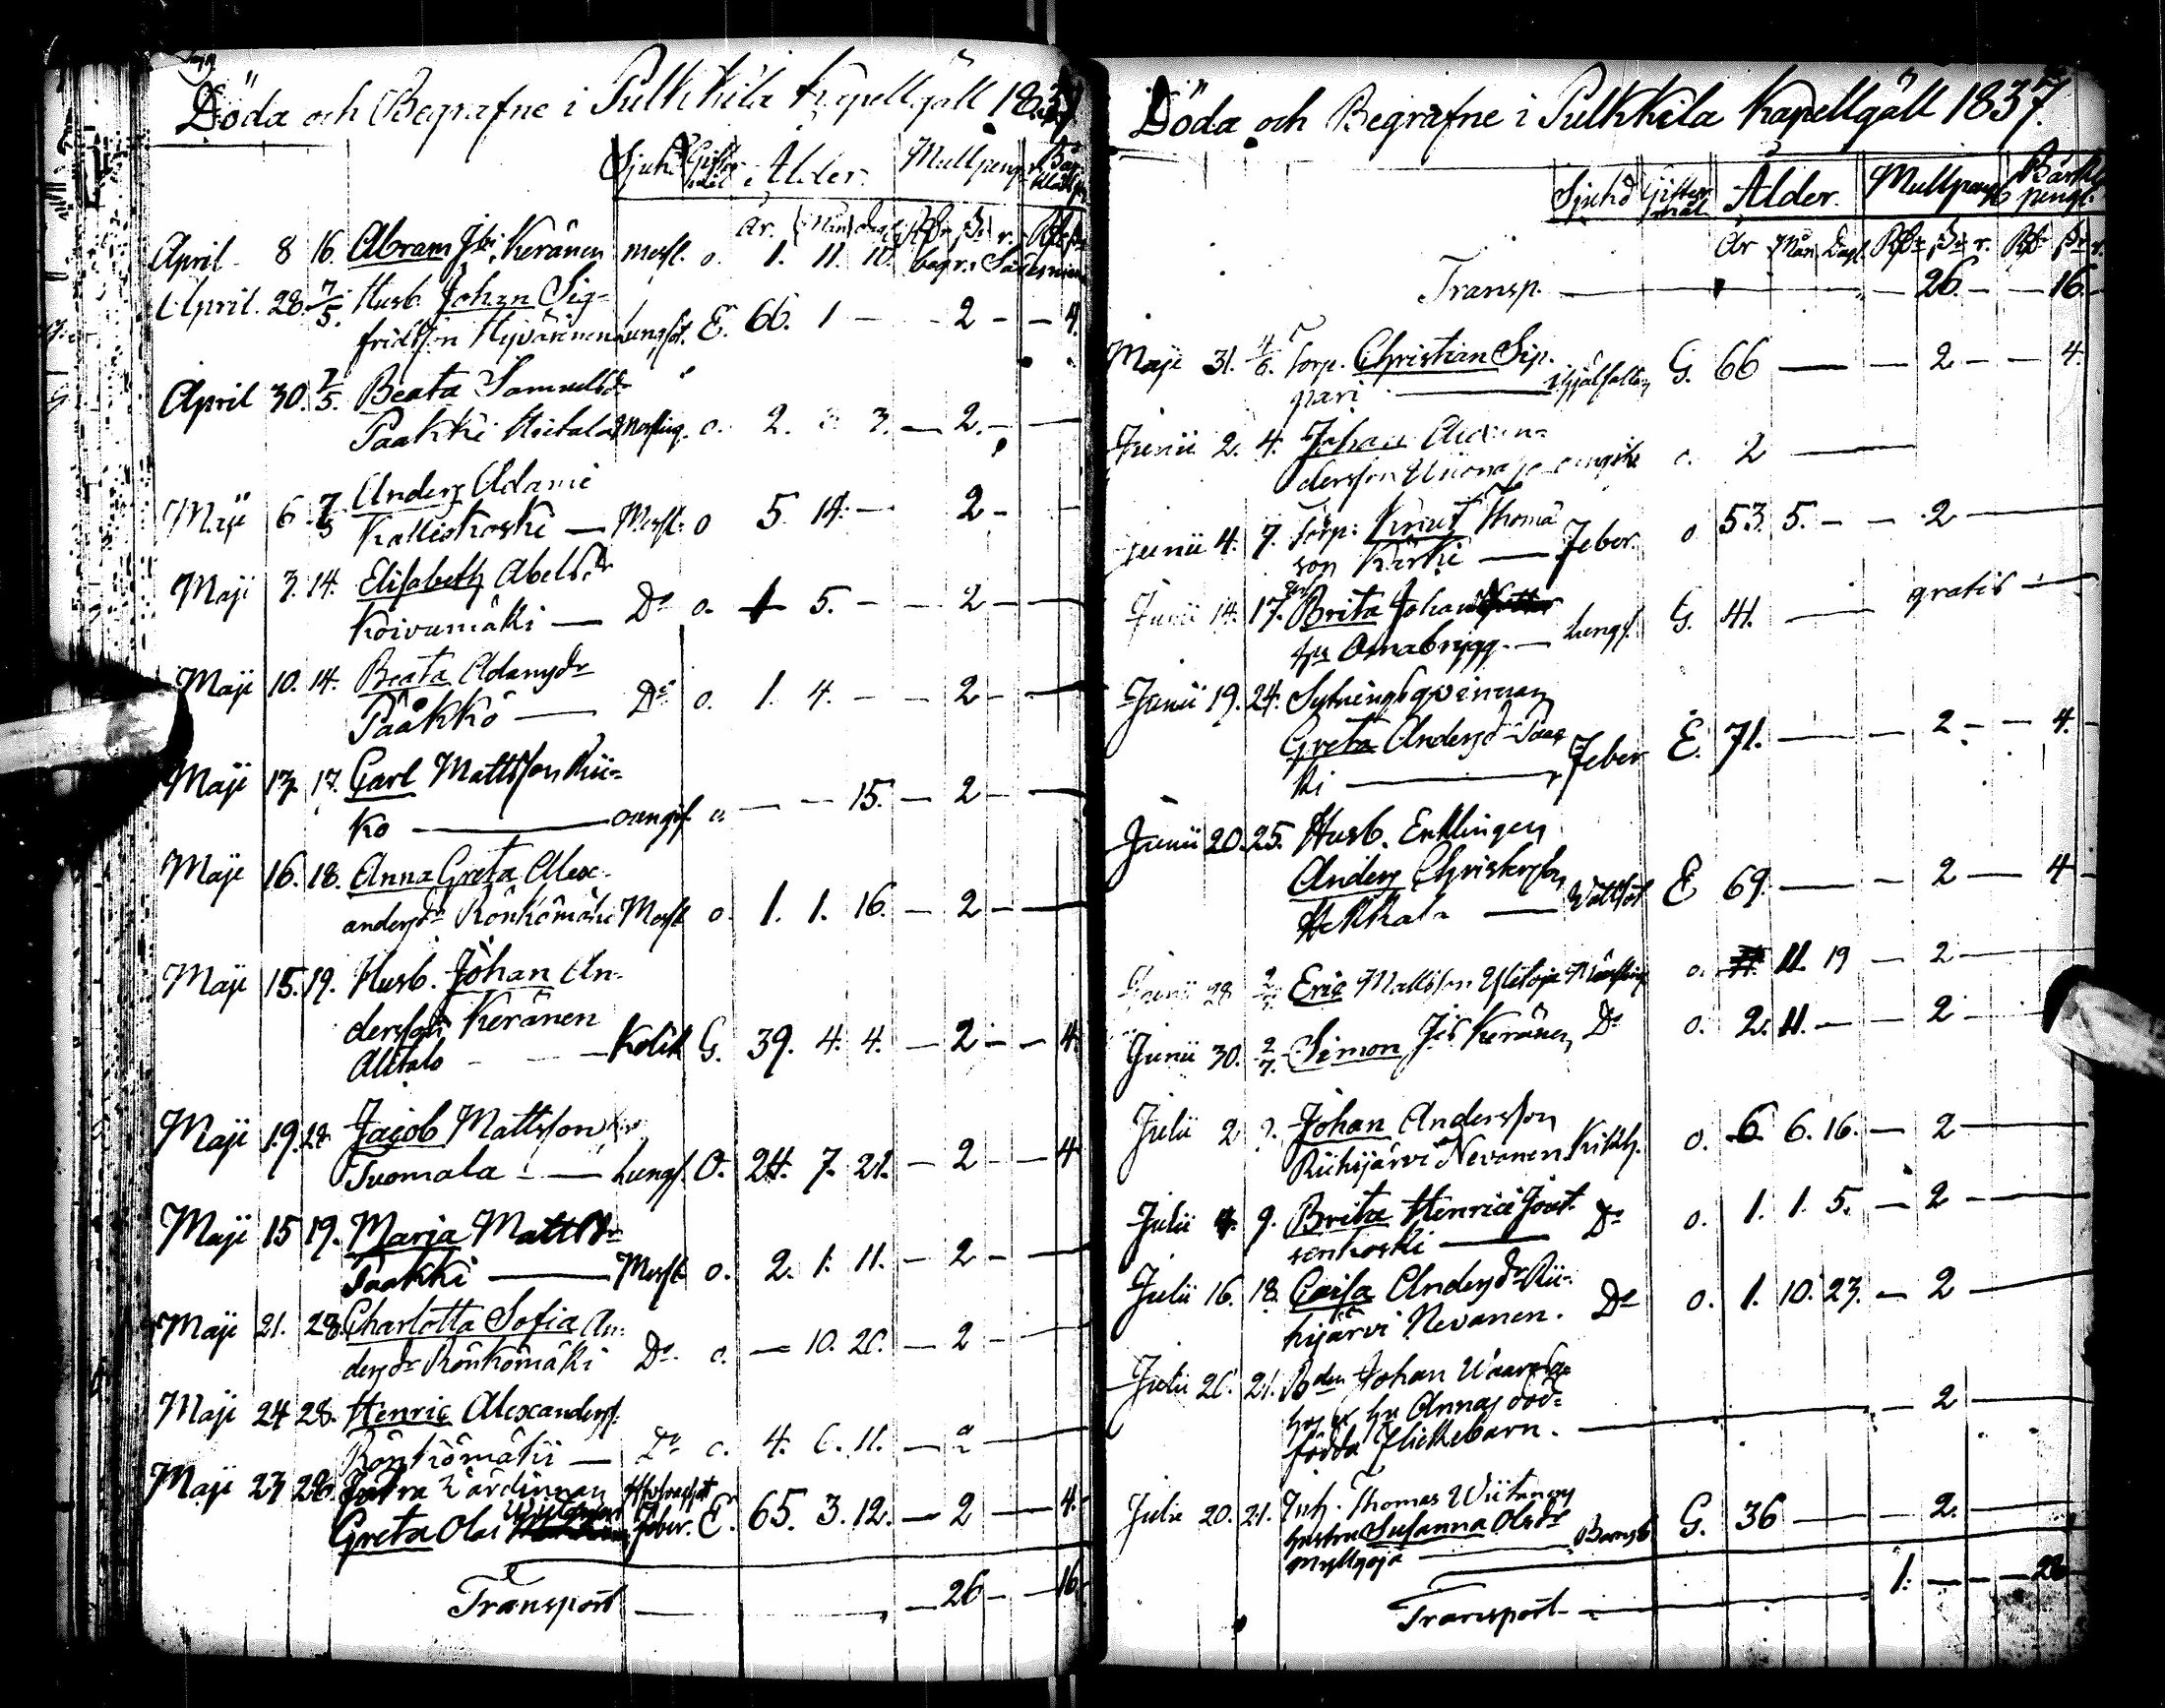 Döda och Begrafne i Pulkkila Kapellgäll 1837
Sjukd. Giftermål Ålder. Mullpeng.
År. Mån Dag.
April 8 16. Abram Keränen Messl. o. 1. 11. 10. begr. i Säresniemi
April. 28. 7/5. Husb. Johan Sig=
fridsson Hyvärinen Lungsot. E. 66. 1 — - 2 — — 4.
April 30. 7/5. Beata Samuelsdr
Paakki Hietala Messling. o. 2. 3. — 2. — —
Maji 6 7/5 Anders Adami
Kalliokoski — Messl. o 5. 14. — 2 —
Maji 7. 14. Elisabeth Abelsdr
Koivumäki — Do o. 1 5. — — 2 — —
Maji 10. 14. Beata Adamsdr
Pääkkö — Do o. 1. 4. — — 2 — —
Maji 17. Carl Mattsson Rii=
ko — o. — — 15. — 2 — —
Maji 16. 18. Anna Greta Alex=
andersdr Rönkömäki Messl o. 1. 1. 16. — 2 — —
Maji 15. 19. Husb. Johan An=
dersson Keränen
Alitalo — Kolik G. 39. 4. 4. — 2 — — 4.
Maji 19. 28. Jacob Mattsson
Tuomala — Lungs. O. 24. 7. 21. — 2 — — 4
Maji 15 19. Maria Mattsdr
Paakki — Messl. o. 2. 1. 11. — 2 — —
Maji 21. 28. Charlotta Sofia An=
dersdr Rönkömäki Do. o. — 10. 20. — 2 — —
Maji 24 28. Henric Alexanders.
Rönkömäki — Do o. 4. 6. 11. — 2 —
Maji 23 28. Wärdinnan
Greta Olai feber. E. 65. 3. 12. — 2 — — 4.
Transport — — 26 — — 16.
Döda och Begrafne i Pulkkila Kapellgäll 1837.
Sjukd Giftermål Ålder. Mullpeng Bårkl. pengr.
År Mån. Dag.
Transp. — — 26. — — 16.
Maji 31. 4/6. Torp. Christian Sip=
pari — ihjälfallen G. 66 — — 2 — — 4.
Junii 2. 4. Johan
dersson o. 2 —
Junii 4. 7. Torp: Knut Thomæ
son Kärki — Feber. o 53. 5. — — 2 —
Junii 14. 17. Brita Johans
Osnabrygg. — Lungs. G. 41. — gratis —
Junii 19. 24. Sytningsqvinnan
Greta Andersdr
ki — Feber E. 71. — — 2 — — 4.
Junii 20. 25. Husb. Enklingen
Anders Christersson
— Wattsot E 69. — — 2 — 4
Junii 28 2/7. Eric Mattsson o. 11. 19 — 2 —
Junii 30. 2/7. Simon Keränen Do o. 2. 11. — — 2 —
Julii 2 9. Johan Andersson
Riihijärvi Nevanen Kikh. o. 6. 16. — 2 —
Julii 4. 9. Brita Henrici Jout=
senkoski — Do o. 1. 1. 5. — 2 —
Julii 16. 18. Caisa Andersdr Rii=
hijärvi Nevanen. Do o. 1. 10. 23. — 2 —
Julii 20. 21. Johan
hu Annas död=
födda flickebarn. — — 2 —
Julii 20. 21. Inh. Thomas Wiitanens
hustru Susanna Olsdr
Myllyoja — Barnsb G. 36 — — 2. —
Transport — 1. — — — 28